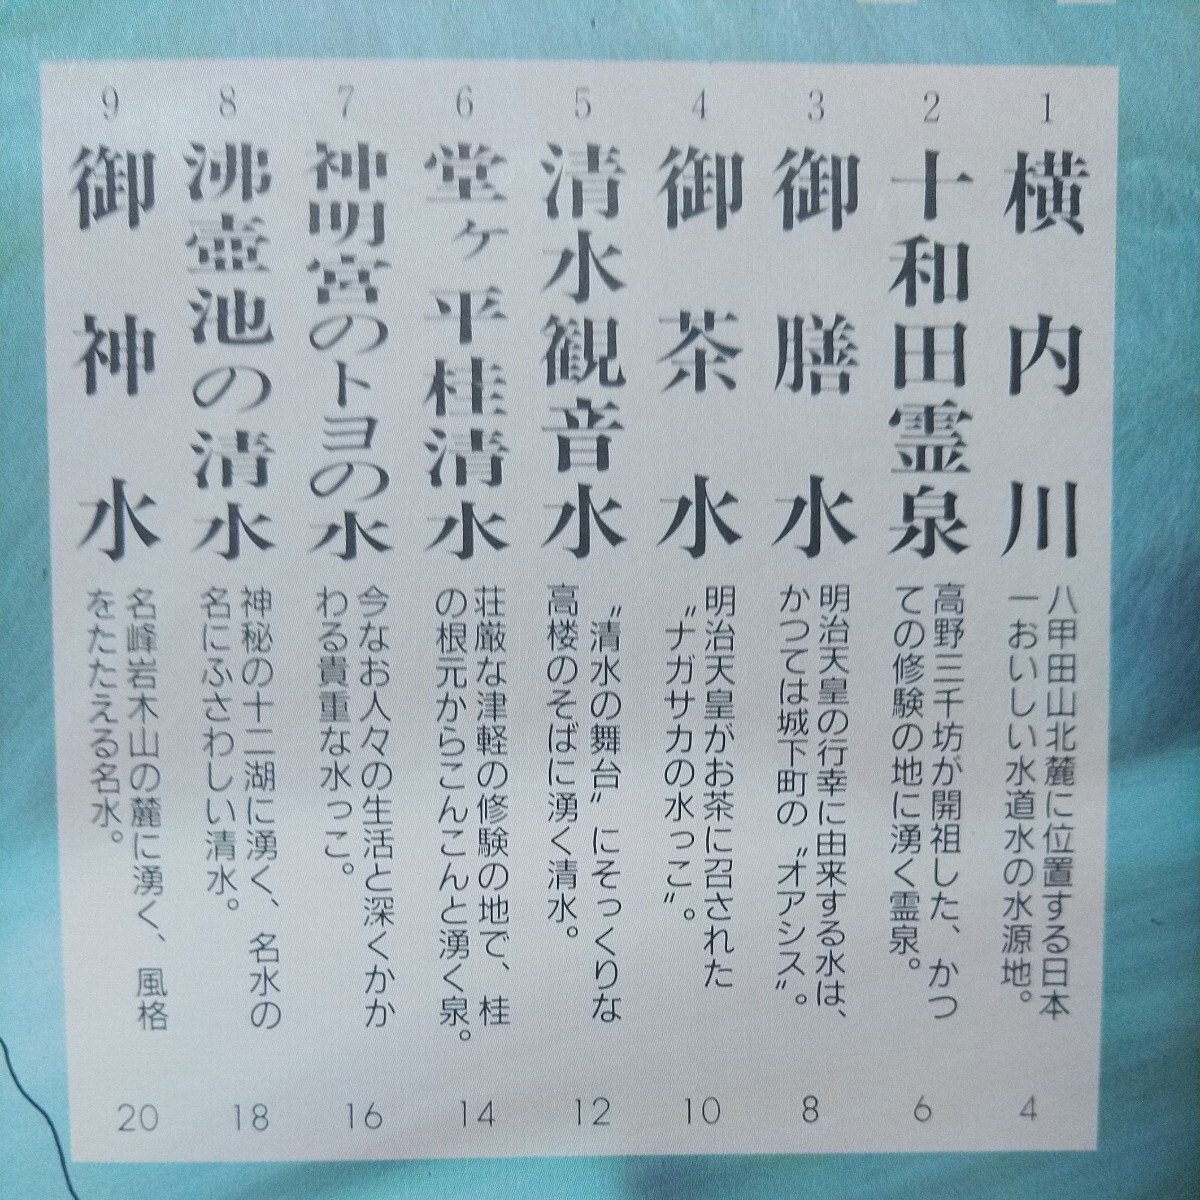 1
横内川
八甲田山北麓に位置する日本
一おいしい水道水の水源地。
4
2
十和田霊泉
高野三千坊が開祖した、かつ
ての修験の地に湧く霊泉。
6
3
御膳水
明治天皇の行幸に由来する水は、
かつては城下町の〝オアシス〟。
8
4
御茶水
明治天皇がお茶に召された
〝ナガサカの水っこ〟。
10
5
清水観音水
〝清水の舞台〟にそっくりな
高楼のそばに湧く清水。
12
6
堂ヶ平桂清水
荘厳な津軽の修験の地で、桂
の根元からこんこんと湧く泉。
14
7
神明宮のトヨの水
今なお人々の生活と深くかか
わる貴重な水っこ。
16
8
沸壺池の清水
神秘の十二湖に湧く、名水の
名にふさわしい清水。
18
9
御神水
名峰岩木山の麓に湧く、風格
をたたえる名水。
20